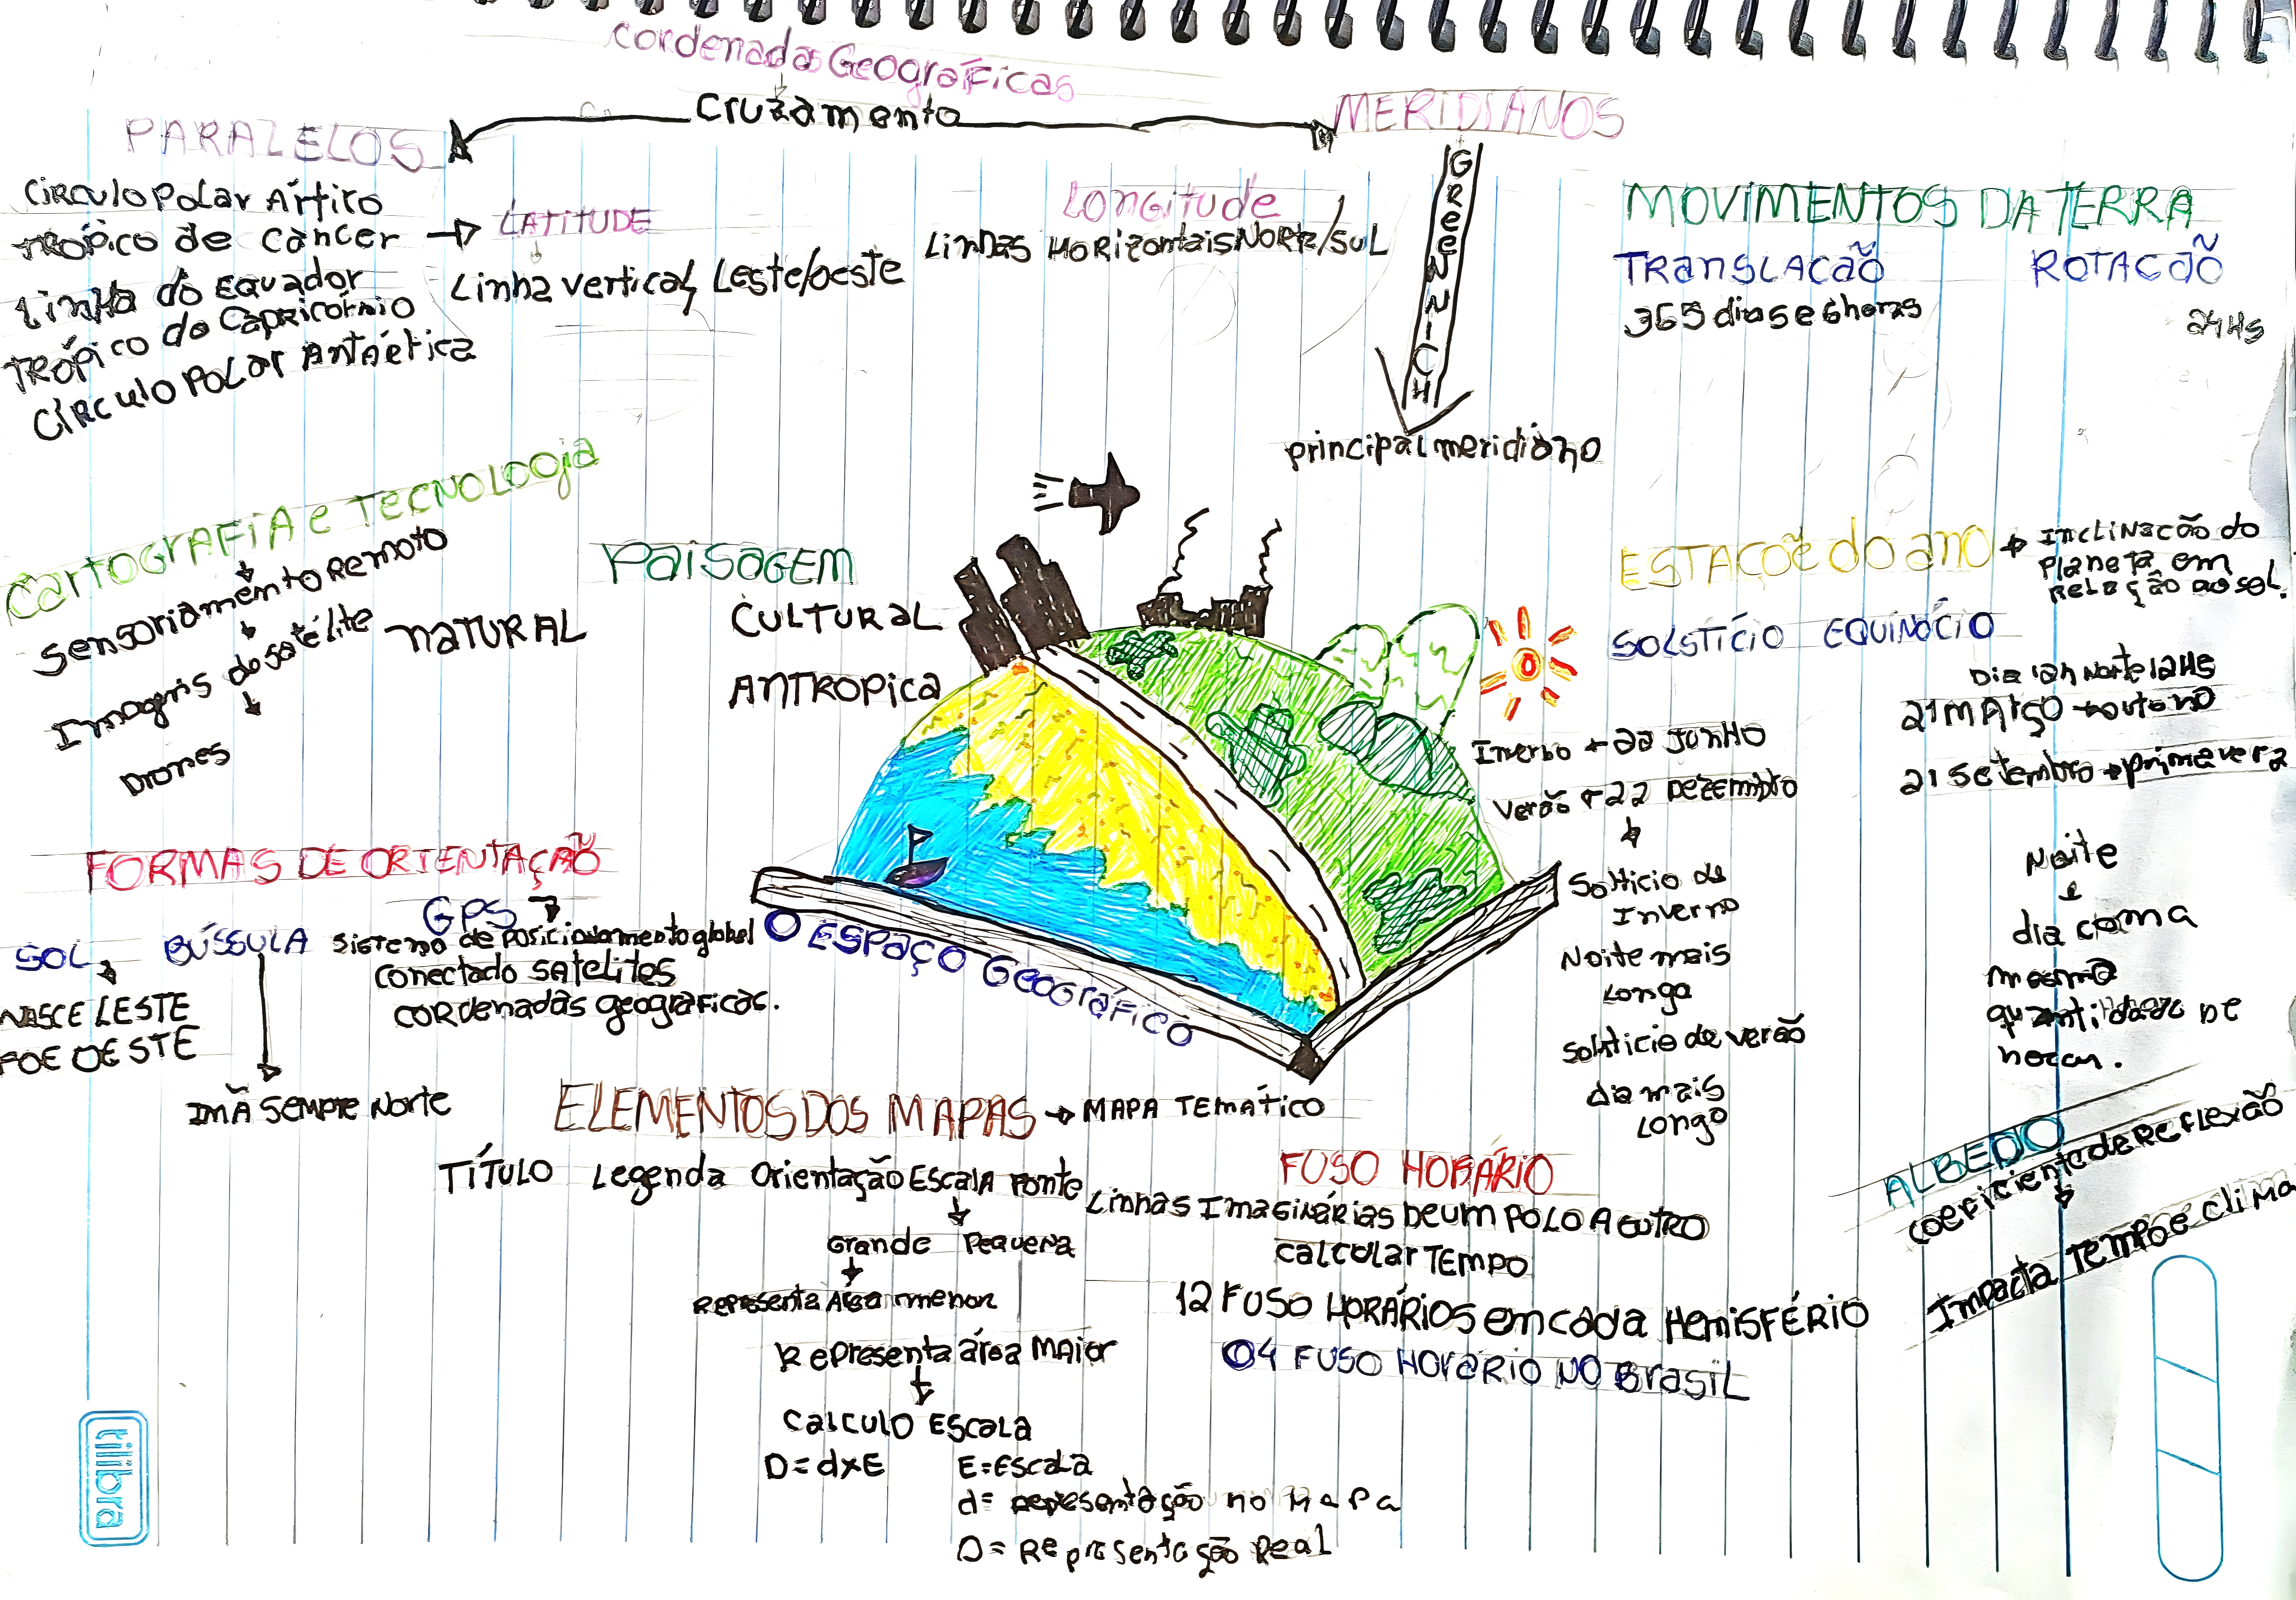 cordenadas Geográficas
Cruzamento
PARALELOS
CÍRCULO POLAR Ártico
TRÓPICO de câncer → LATITUDE
Linha do EQUADOR
TRÓPICO do Capricórnio
CÍRCULO POLAR Antaética
Linha vertical, Leste/oeste
Longitude
Linhas HorizontaisNORte/sul
MERIDIANOS
GREENNICH
principal meridiano
MOVIMENTOS DA TERRA
TRANSLACAÕ
365 dias e 6 horas
ROTACÃO
24Hs
Cartografia e TECNOLOGIA
Sensoriamento Remoto
Imagens do satélite
Drones
PAISAGEM
NATURAL
CULTURAL
ANTROPICA
ESTAÇOẽ do ano → INCLINACÃO do
Planeta em
Relação ao sol.
SOLSTÍCIO EQUINÓCIO
Dia 12h Norte 12Hs
21 MARÇO → outono
21 Setembro → primavera
Inverno → 22 JUNHO
Verão → 22 Dezembro
Solticio de
Inverno
Noite mais
Longa
Solsticio de verão
dia mais
Longo
Noite
e
dia com a
mesma
quantidade DE
horas.
FORMAS DE ORIENTAÇAÕ
SOL
NASCE LESTE
POE OESTE
BÚSSULA
IMÃ SEMPRE Norte
GPS
Sistema de Posicionamento global
conectado SATELITES
CORdenadas geograficas.
O ESPAÇO Geográfico
ELEMENTOS DOS MAPAS → MAPA TEMÁTICO
TÍTULO Legenda Orientação ESCALA Fonte
Grande Pequena
Representa Área menor
Representa área MAior
CALCULO ESCALA
D = d x E
E = Escala
d = representação no Mapa
D = Representação Real
FUSO HORÁRIO
Linhas Imaginárias DE UM POLO A OUTRO
CALCULAR TEMPO
12 FUSO HORÁRIOS em cada HemisFÉRIO
04 FUSO HORARIO NO BrasiL
ALBEDO
coeficiente de Reflexão
Impacta Tempo e clima
tilibra